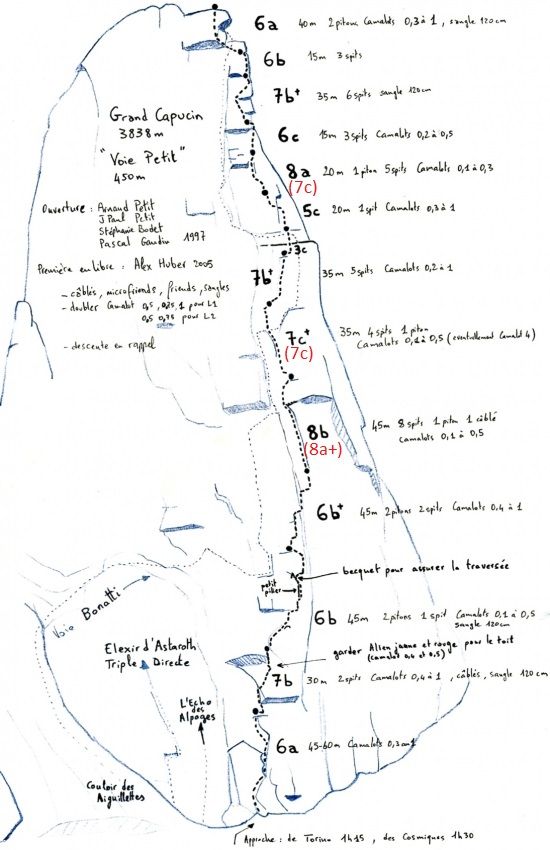 6a 40m 2pitons Camalots 0,3 à 1, sangle 120cm
6b 15m 3 spits
7b+ 35m 6 spits sangle 120cm
Grand Capucin
3838m
"Voie Petit"
450m
6c 15m 3 spits Camalots 0,2 à 0,5
8a 20m 1 piton 5 spits Camalots 0,1 à 0,3
(7c)
5c 20m 1 spit Camalots 0,3 à 1
Ouverture : Arnaud Petit
J Paul Petit
Stéphanie Bodet
Pascal Gaudin 1997
3c
Première en libre : Alex Huber 2005
7b+ 35m 5 spits Camalots 0,2 à 1
- câblés, microfriends, friends, sangles
- doubler Camalot 0,5, 0,75, 1 pour L1
0,5 0,75 pour L2
- descente en rappel
7c+ 35m 4 spits 1 piton
(7c) Camalots 0,1 à 0,5 (eventuellement Camalot 4)
8b 45m 8 spits 1 piton 1 câblé
(8a+) Camalots 0,1 à 0,5
6b+ 45m 2pitons 2 spits Camalots 0,4 à 1
becquet pour assurer la traversée
petit
pilier
Voie Bonatti
6b 45m 2pitons 1 spit Camalots 0,1 à 0,5
sangle 120cm
Elexir d'Astaroth
Triple Directe
garder Alien jaune et rouge pour le toit
(camalot 0,4 et 0,5)
7b 30m 2 spits Camalots 0,4 à 1, câblés, sangle 120 cm
L'Echo
des
Alpages
6a 45-60m Camalots 0,3 à 1
Couloir des
Aiguillettes
Approche : de Torino 1h15, des Cosmiques 1h30